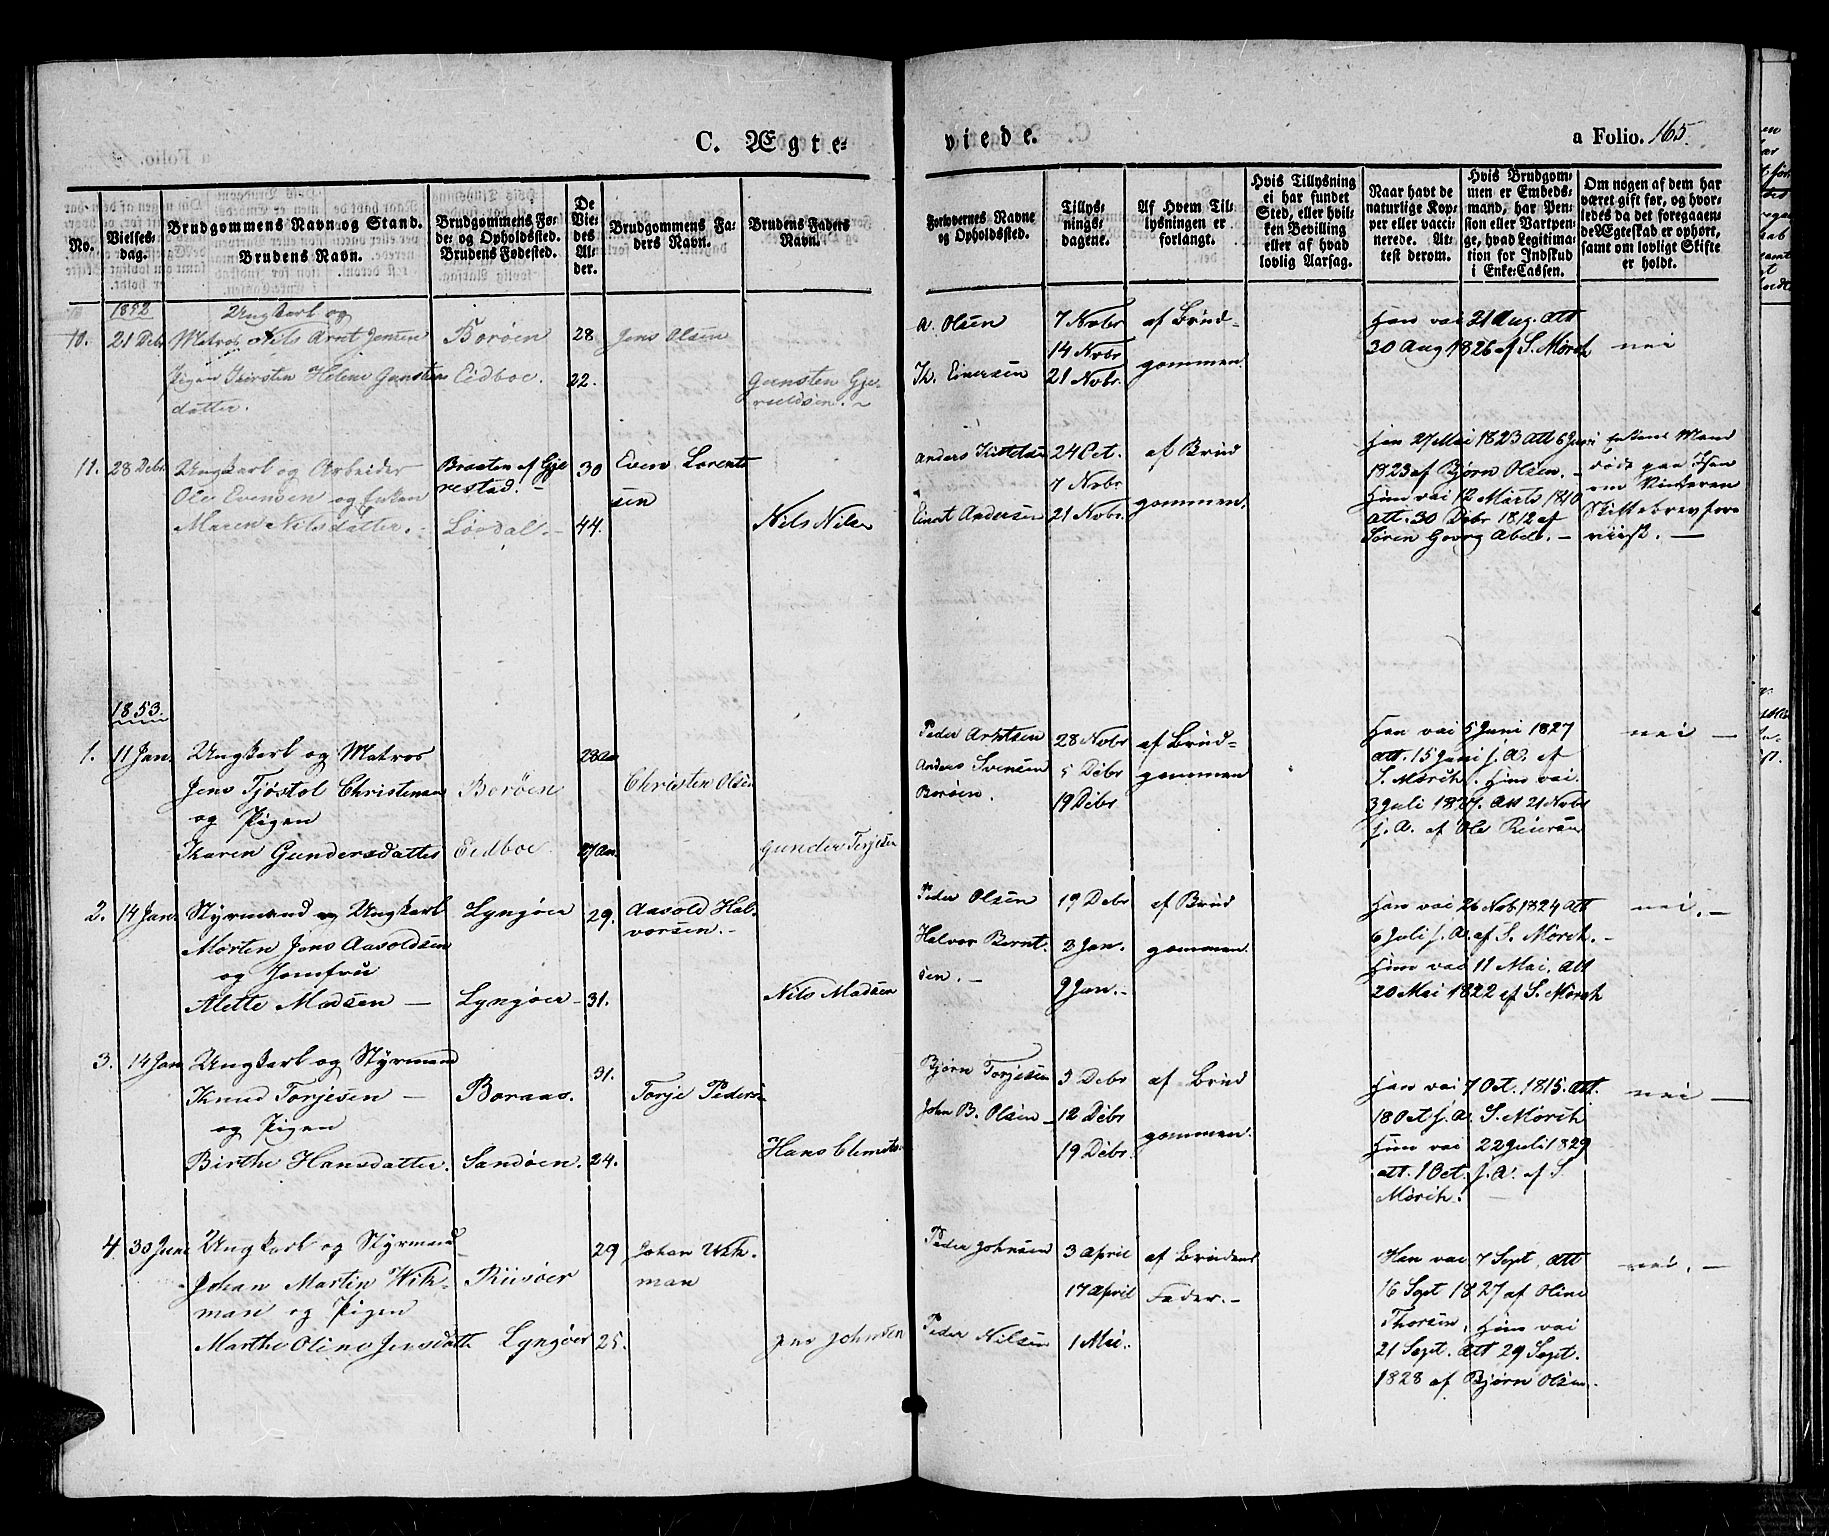 C. Ægte-
viede.
a Folio. 165.
No.
Vielses-
dag.
Brudgommens Navn og Stand.
Brudens Navn.
Brudgommens Fø-
de- og Opholdssted.
Brudens Fødested.
De
Vie-
des
Al-
der.
Brudgommens Fa-
ders Navn.
Brudens Faders
Navn.
Forlovernes Navne
og Opholdssted.
Tillys-
nings-
dagene.
Af Hvem Til-
lysningen er
forlangt.
Hvis Tillysning
ei har fundet
Sted, eller hvil-
ken Bevilling
eller af hvad
lovlig Aarsag.
Naar havt de
naturlige Kop-
per eller vacci-
nerede. At-
test derom.
Hvis Brudgom-
men er Embeds-
mand, har Pen-
sion eller Vartpen-
ge, hvad Legitima-
tion for Indskud
i Enke-Cassen.
Om nogen af dem har
været gift før, og hvor-
ledes da det foregaaen-
de Ægteskab er ophørt,
samt om lovligt Skifte
er holdt.
1852
10. 21 Debr
Ungkarl og
Matros Nils Arnt Jensen
Pigen Kirsten Helene Gunstens
datter.
Borøen
Eidboe.
28
22.
Jens Olsen
Gunsten Gje-
ruldsen. -
A. Olsen
Th. Einersen
7 Novbr
14 Novbr
21 Novbr.
af Brud-
gommen.
Han vac 21 Aug. att
30 Aug 1826 af S. Mörch
nei
11. 28 Debr.
Ungkarl og Arbeider
Ole Evensen og Enken
Maren Nilsdatter. -
Braaten af Gje
restad. -
Lövdal. -
30
44.
Even Lorents
sen
Nils Nilsen
Anders Kittelsen
Einert Andersen
24 Oct.
7 Novbr
21 Novbr.
af Brud
gommen.
Han 27 Mai 1823 att 6 Juni
1823 af Bjørn Olsen. -
Hun vac 12 Marts 1810
att. 30 Debr 1812 af
Sören Georg Abel. -
Enkens Mand
döde paa Isen
om Vinteren
Skiftebrev fore
viist. -
1853.
1. 11 Jan.
Ungkarl og Matros
Jens Tjøstol Christensen
og Pigen
Karen Gundersdatter
Borøen
Eidboe.
28 Aar
27 Aar.
Christen Olsen
Gunder Terjesen
Peder Arntsen
Anders Svensen
Borøen.
28 Novbr
5 Debr
19 Debr
af Brud-
gommen
Han vac 5 Juni 1827
att. 15 Juni s. A. af
S. Mörch. Hun vac.
3 Juli 1827. att 21 Novbr
s. A. af Ole Reiersen
nei -
2. 14 Jan.
Styrmand og Ungkarl
Morten Jens Aasoldsen
og Jomfru
Alette Madsen -
Lyngöer
Lyngöer -
29.
31.
Aasold Hal-
vorsen. -
Nils Madsen
Peder Olsen
Halvor Bernt-
sen. -
19 Debr
2 Jan.
9 Jan. -
af Brud
gommen.
Han vac 26 Nov. 1824 att
6 Juli s. A. af S. Mörch. -
Hun vac 11 Mai. att
20 Mai 1822 af S. Mörch
nei. -
3. 14 Jan
Ungkarl og Styrmand
Knud Torjesen -
og Pigen
Birthe Hansdatter.
Boraas.
Sandöen.
31.
24.
Torje Pedersen
Hans Clemets-
Bjørn Torjesen
John B. Olsen -
5 Debr
12 Debr
19 Debr.
af Brud
gommen.
Han vac 7 Oct. 1815. att.
18 Oct s. A. S. Mörch
Hun vac 22 Juli 1829
att. 1 Oct. s. A. af S
Mörch.
nei -
4. 30 Juni
Ungkarl og Styrmand
Johan Martin Wik-
man og Pigen
Marthe Oline Jensdatter
Riisöer
Lyngöer
29
25.
Johan Wik-
man
Jens Johnsen
Peder Johnsen
Peder Nilsen
3 April
17 April
1 Mai.
af Brudens
Fader. -
Han vac 7 Sept. att
16 Sept 1827 af Oline
Thorsen. Hun vac
21 Sept. att 29 Sept.
1828 af Bjørn Olsen.
nei. -